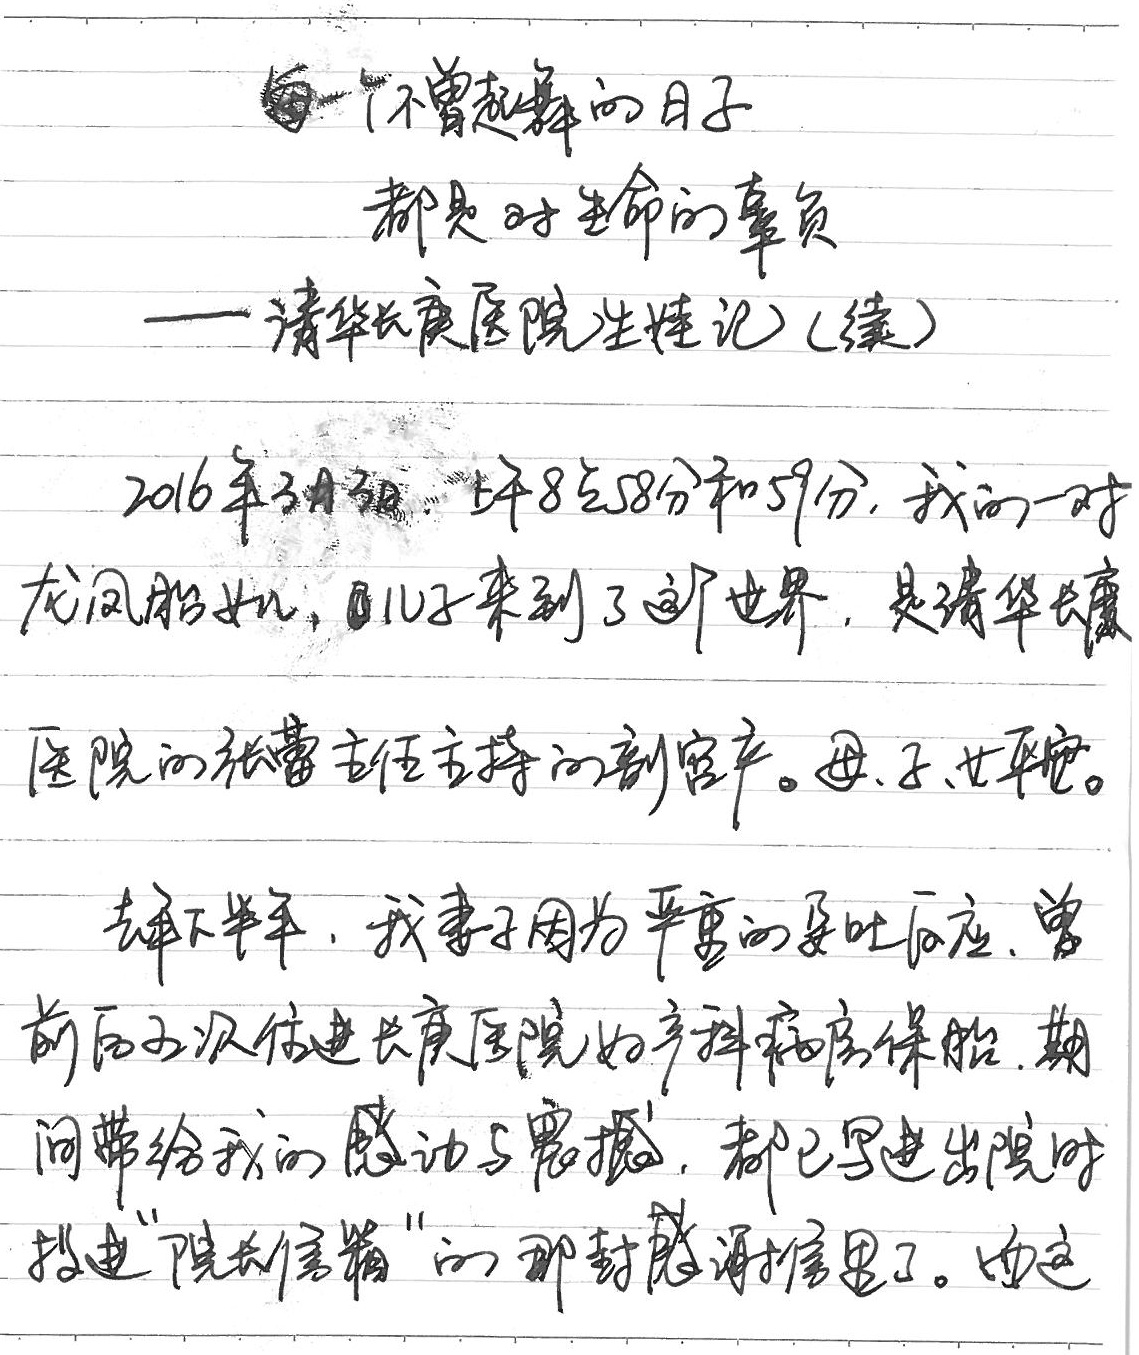 每一个不曾起舞的日子
都是对生命的辜负
——清华长庚医院生娃记（续）
2016年3月3日，上午8点58分和59分，我的一对
龙凤胎女儿，儿子来到了这个世界，是清华长庚
医院的张蕾主任主持的剖宫产。母、子、女平安。
去年下半年，我妻子因为严重的孕吐反应，曾
前后五次住进长庚医院妇产科病房保胎，期
间带给我的感动与震撼，都已写进出院时
投进“院长信箱”的那封感谢信里了。而这